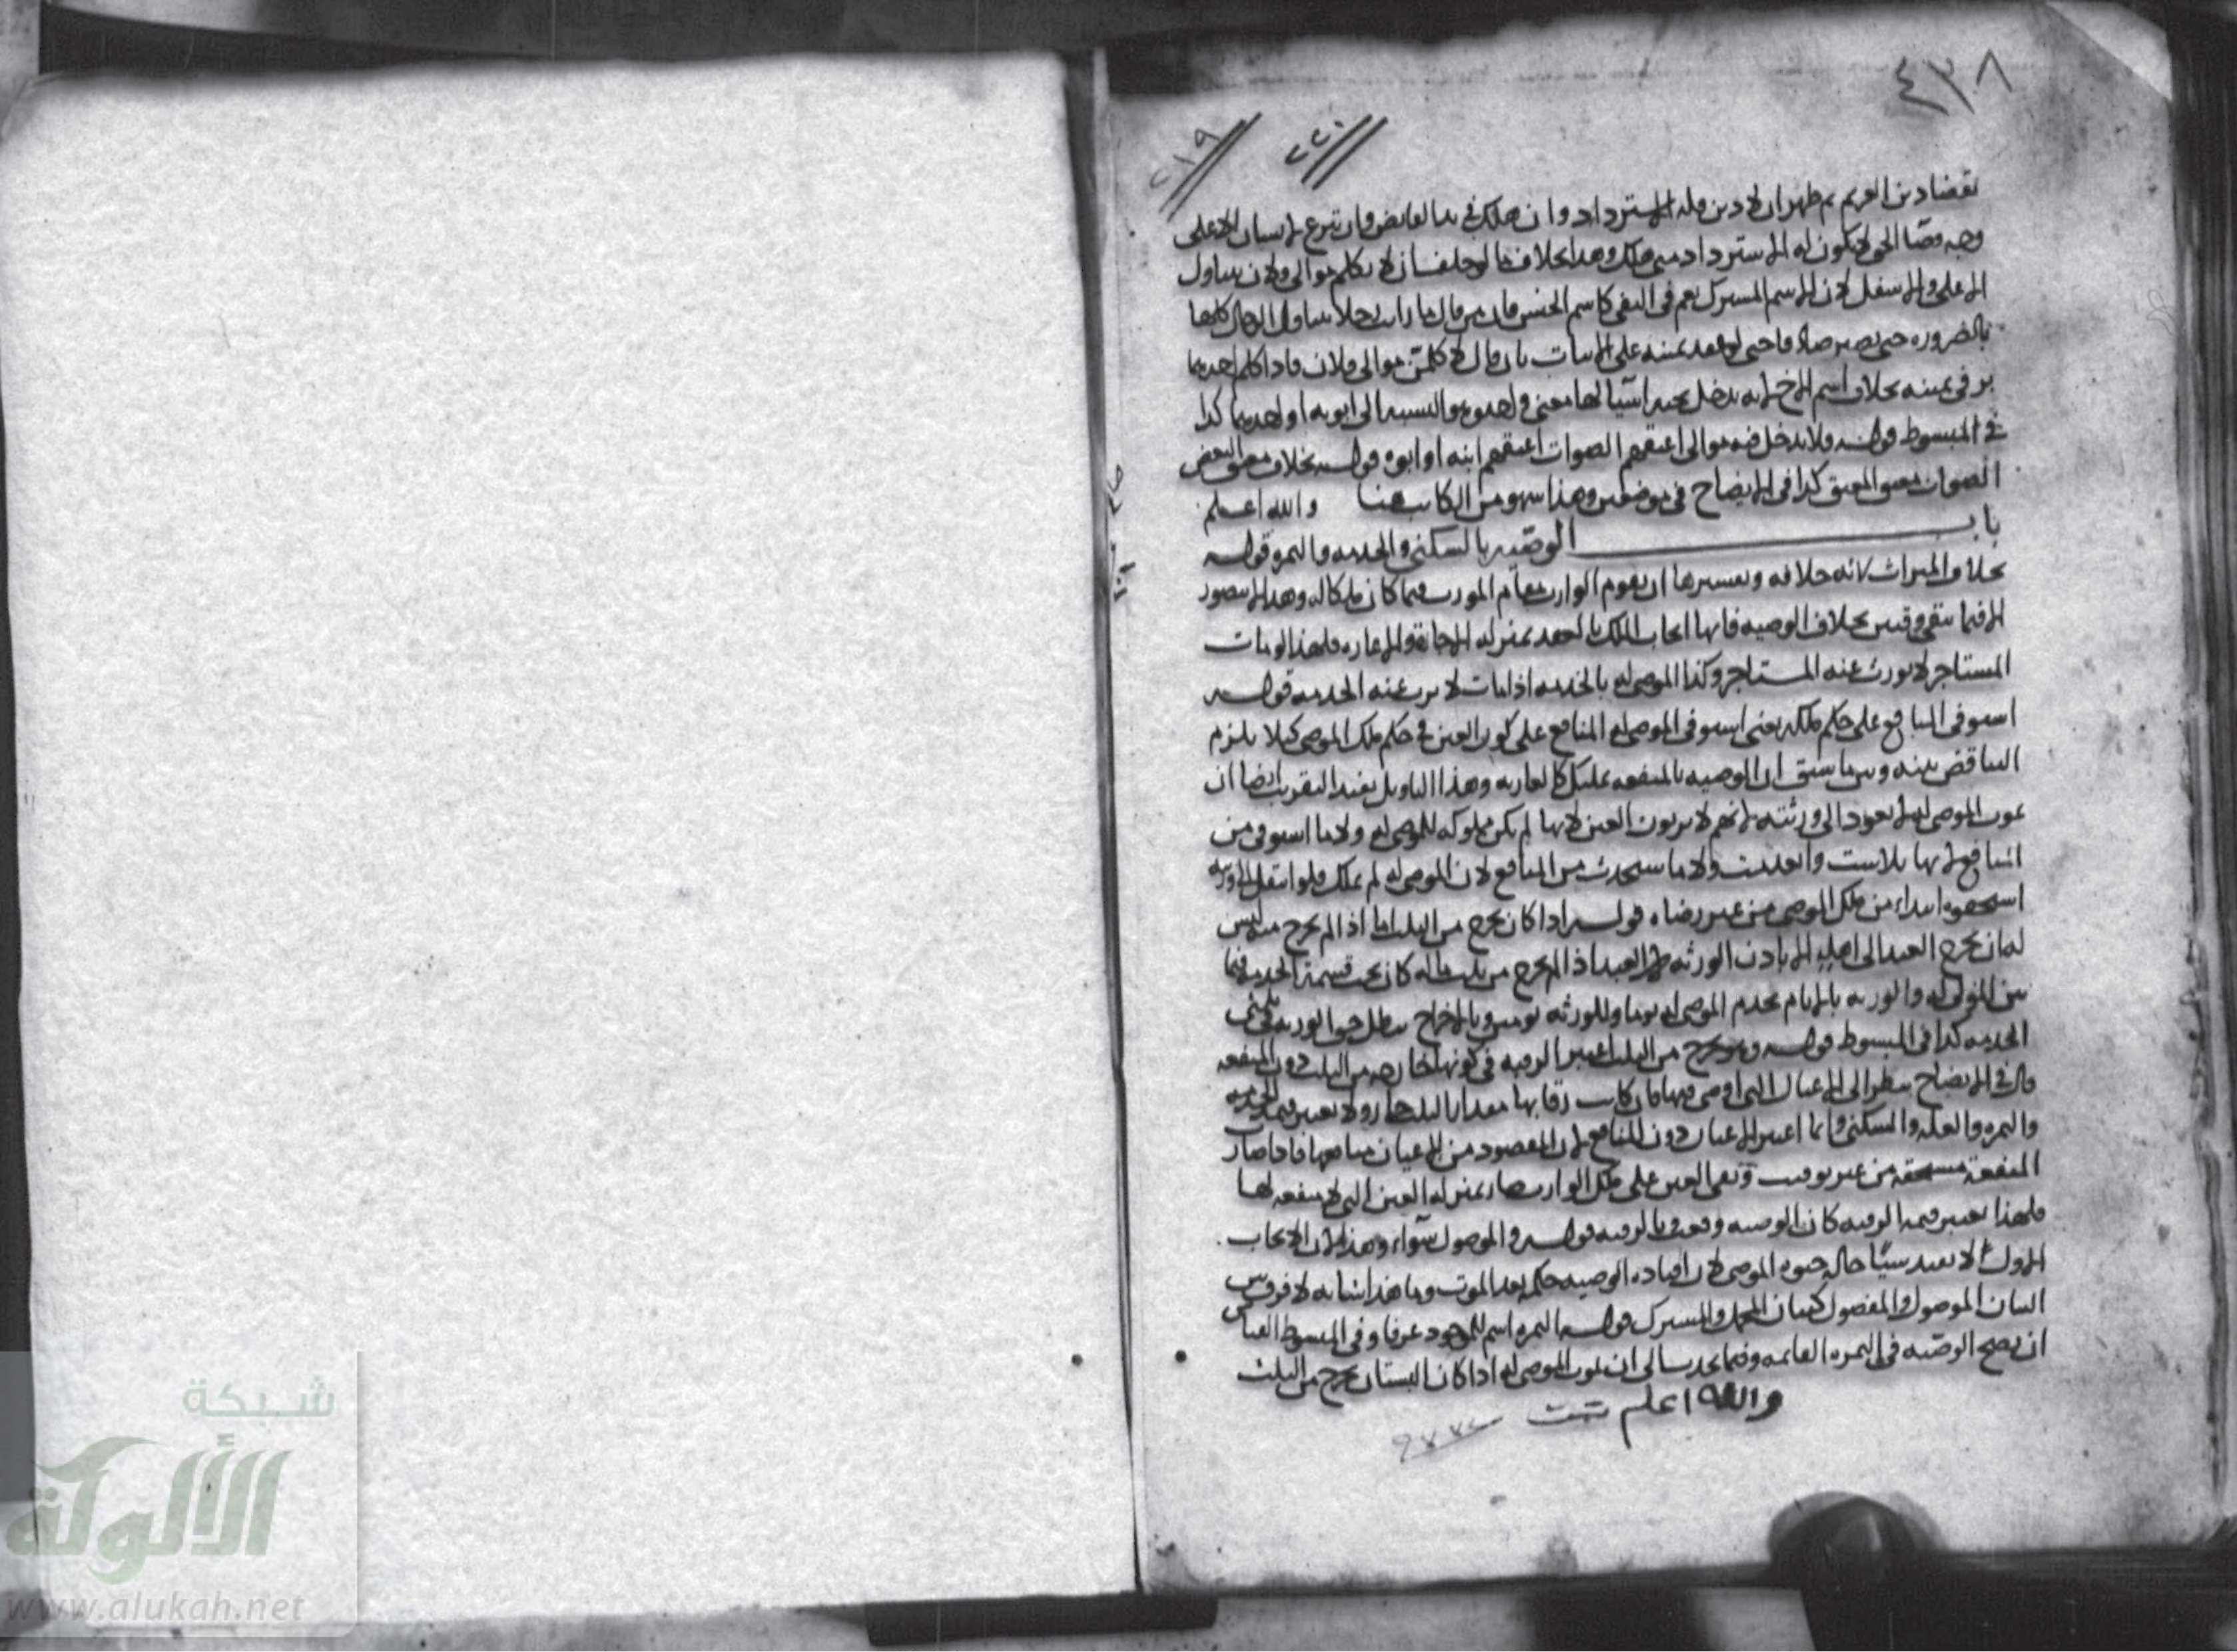 ٤٣٨
٢٢٠
٢١٩
بقضا دين الغريم ثم ظهر ان لا دين فله الاسترداد وان هلك في يد القابض وان تبرع بانسان لا على
وجه قضا الحق لا يكون له الاسترداد متى هلك وهذا بخلاف ما لو حلف ان لا يكلم موالي فلان يتناول
الاعلى والاسفل لان الاسم المشترك يعم في النفي كاسم الجنس فان من قال ما رايت رجلا يتناول الرجال كلها
بالضرورة حتى يصير صادقا حتى لو عقد يمينه على الاثبات بان قال لاكلمن موالي فلان فاذا كلم احدهما
بر في يمينه بخلاف اسم الاخ لانه يدخل تحته اشيا لها معنى واحد وهو النسبة الى ابويه او احدهما كذا
في المبسوط قوله ولا يدخل فيه موالي اعتقهم الصواب اعتقهم ابنه او ابوه قوله بخلاف معتق البعض
الصواب معتق المعتق كذا في الايضاح في موضعين وهذا سهو من الكاتب هنا والله اعلم
باب الوصية بالسكنى والخدمة والثمرة قوله
بخلاف الميراث لانه خلافة وتفسيرها ان يقوم الوارث مقام المورث فيما كان ملكا له وهذا لا يتصور
الا فيما يبقى وقتين بخلاف الوصية فانها ايجاب الملك بالعقد بمنزلة الاجارة والاعارة فلهذا لو مات
المستاجر لا يورث عنه المستاجر وكذا الموصى له بالخدمة اذا مات لا يورث عنه الخدمة قوله
استوفى المنافع على حكم ملكه يعني استوفى الموصى له المنافع على كون العين في حكم ملك الموصي كيلا يلزم
التناقض بينه وبين ما سبق ان الوصية بالمنفعة تمليك كالعارية وهذا التاويل يفيد التقريب ايضا ان
بموت الموصى له لا يعود الى ورثته لانهم لا يرثون العين لانها لم يكن مملوكة للموصى له ولا ما استوفى من
المنافع لانها تلاشت وانعدمت ولا ما سيحدث من المنافع لان الموصى له لم يملك فلو انتقل الى ورثته
استحقوه ابتداء من ملك الموصي من غير رضاه قوله اذا كان يخرج من الثلث اما اذا لم يخرج منه ليس
له ان يخرج العبد الى اهله الا باذن الورثة لان العبد اذا لم يخرج من ثلث ماله كان تحت قسمة الخدمة فيما
بين الموصى له والورثة بالايام يخدم الموصى له يوما وللورثة يومين وبالاخراج يبطل حق الورثة في ثلثي
الخدمة كذا في المبسوط قوله وهو يخرج من الثلث اعتبر الرقبة في كونها خارجة من الثلث دون المنفعة
قال في الايضاح ينظر الى الاعيان التي اوصى فيها فان كانت رقابها مقدار الثلث جاز ولا يعتبر قيمة الخدمة
والثمرة والغلة والسكنى وانما اعتبر الاعيان دون المنافع لان المقصود من الاعيان منافعها فاذا صارت
المنفعة مستحقة من غير توقيت وبقي العين على ملك الوارث صار بمنزلة العين التي لا منفعة لها
فلهذا يعتبر قيمة الرقبة كان الوصية وقعت بالرقبة قوله والموصول سواء وهذا لان الايجاب
الاول لا يفيد شيئا حال حيوة الموصي لان افادة الوصية حكمه بعد الموت وما هذا شانه لا فرق بين
البيان الموصول والمفصول كبيان المجمل والمشترك قوله الثمرة اسم للموجود عرفا وفي المبسوط القياس
ان يصح الوصية في الثمرة القائمة وفيما يحدث الى ان يموت الموصى له اذا كان البستان يخرج من الثلث
والله اعلم تمت